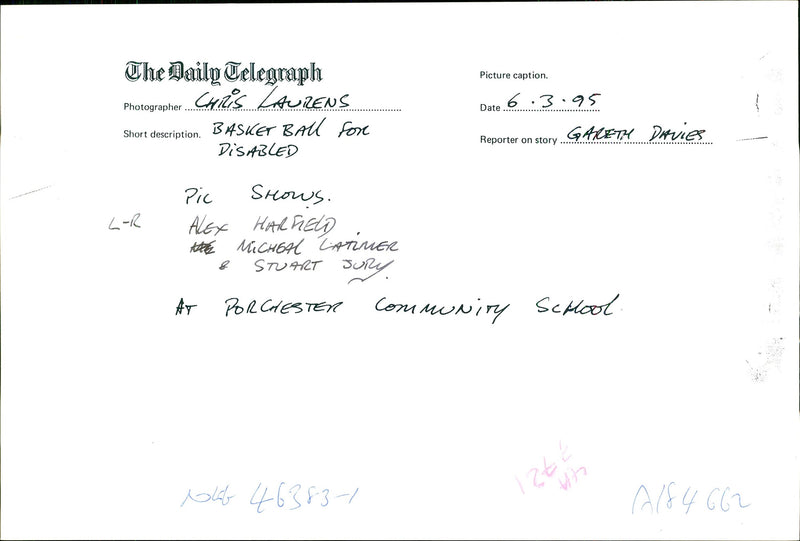 The Daily Telegraph
Picture caption.
Photographer CHRIS LAURENS
Date 6.3.95
Short description. BASKET BALL FOR
DISABLED
Reporter on story GARETH DAVIES
PIC SHOWS.
L-R ALEX HARFIELD
MICHEAL LATIMER
& STUART JURY
AT PORCHESTER COMMUNITY SCHOOL
46383-1
A184662